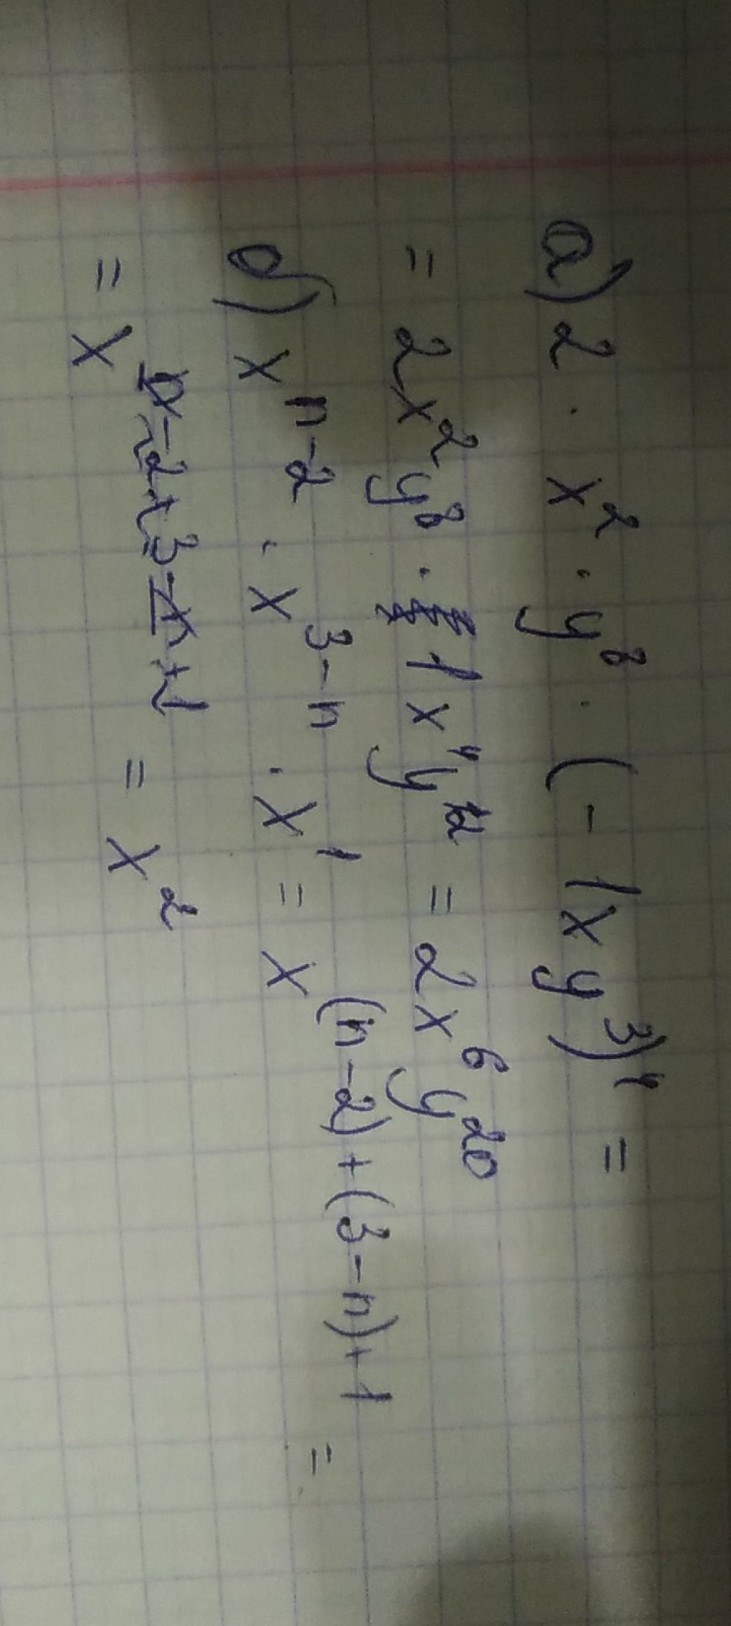 а) 2 · x² · y⁸ · (- 1xy³)⁴ =
= 2x²y⁸ · 1x⁴y¹² = 2x⁶y²⁰
б) xⁿ⁻² · x³⁻ⁿ · x¹ = x⁽ⁿ⁻²⁾⁺⁽³⁻ⁿ⁾⁺¹ =
= xⁿ⁻²⁺³⁻ⁿ⁺¹ = x²